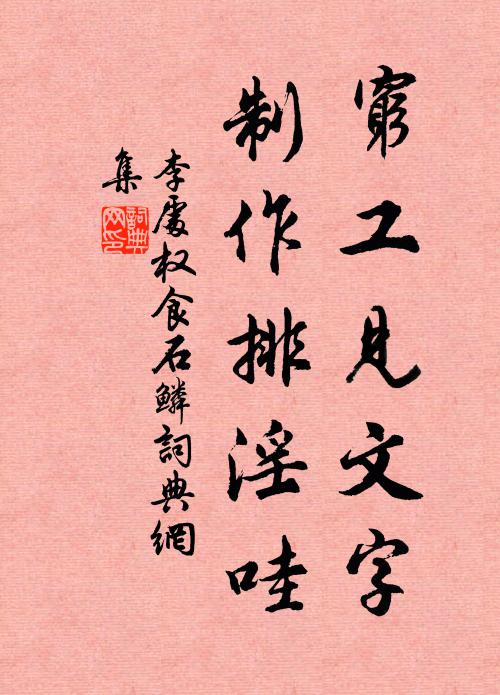 窮工見文字
制作排淫哇
李處权食石鱗詞典網
集
詞典
网印